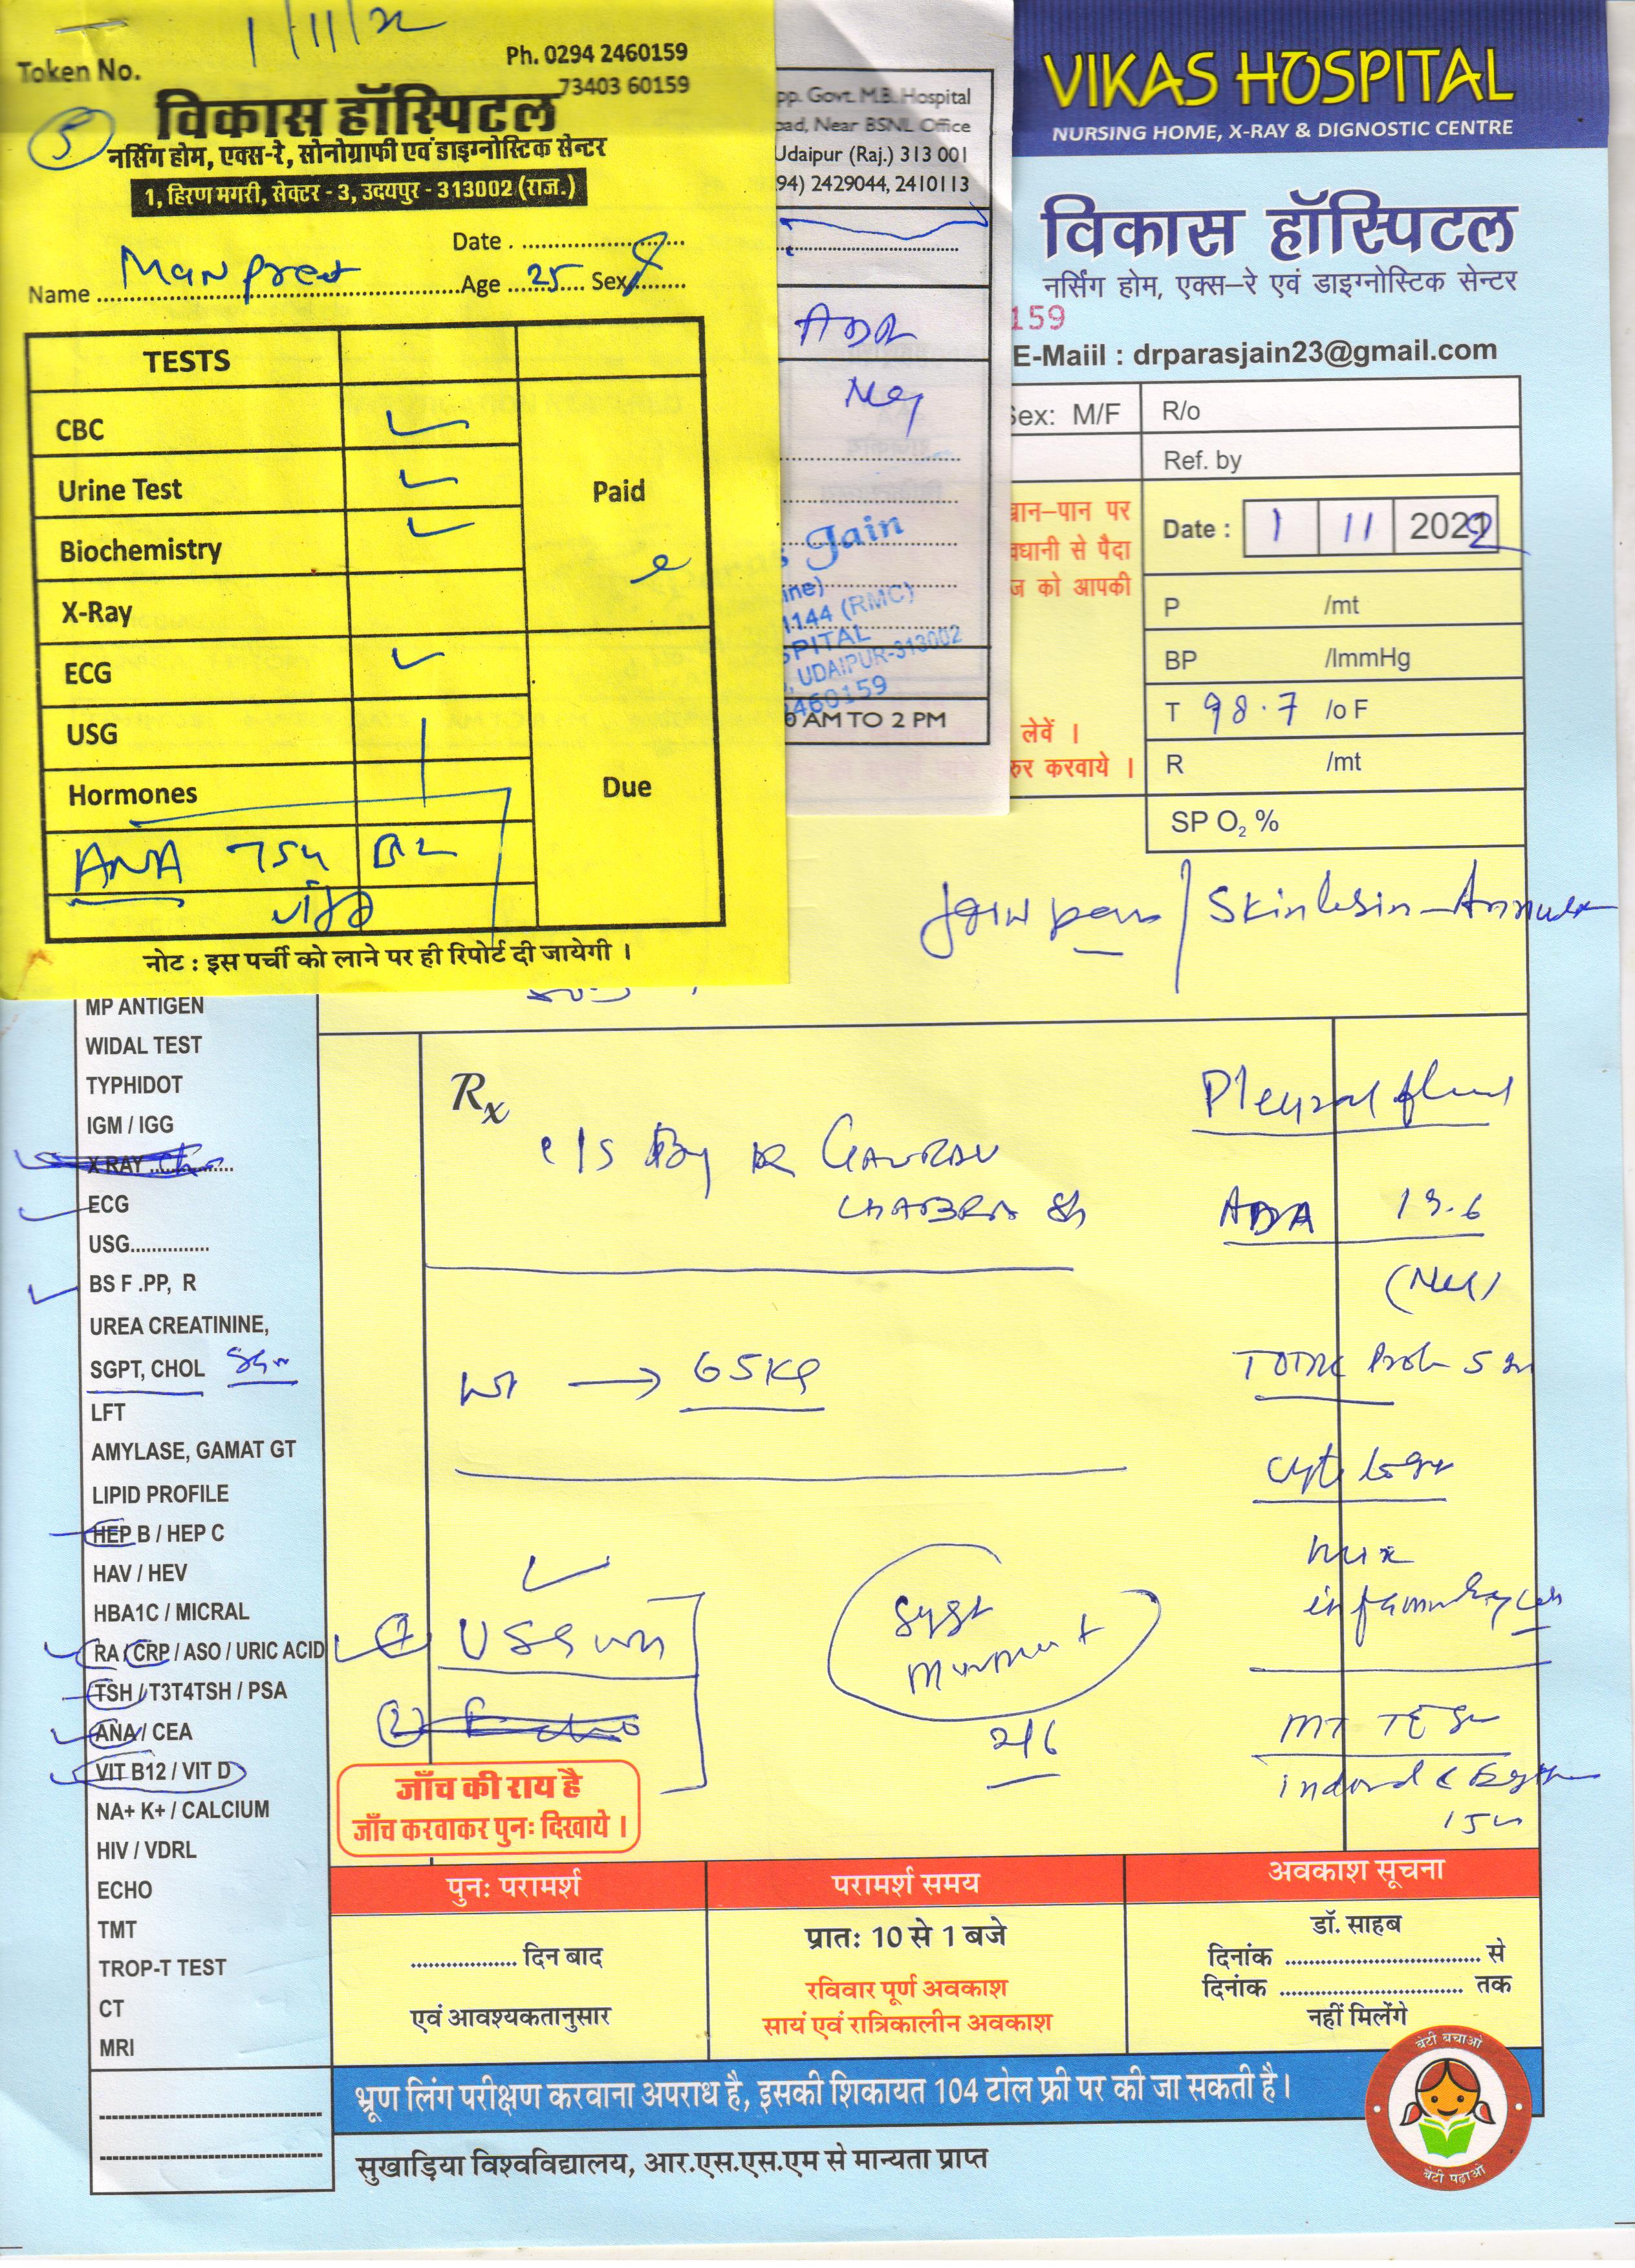 1/11/22
Token No.
5
Ph. 0294 2460159
73403 60159
विकास हॉस्पिटल
नर्सिंग होम, एक्स-रे, सोनोग्राफी एवं डाइग्नोस्टिक सेन्टर
1, हिरण मगरी, सेक्टर - 3, उदयपुर - 313002 (राज.)
Date .
Name Manpreet Age 25 Sex
TESTS
CBC
Urine Test
Biochemistry
X-Ray
ECG
USG
Hormones
Paid
Due
ANA TSH B12
Vit D
नोट : इस पर्ची को लाने पर ही रिपोर्ट दी जायेगी ।
pp. Govt. M.B. Hospital
oad, Near BSNL Office
Udaipur (Raj.) 313 001
94) 2429044, 2410113
ADA
Neg
s Jain
ine)
1144 (RMC)
SPITAL
, UDAIPUR-313002
2460159
0 AM TO 2 PM
VIKAS HOSPITAL
NURSING HOME, X-RAY & DIGNOSTIC CENTRE
विकास हॉस्पिटल
नर्सिंग होम, एक्स–रे एवं डाइग्नोस्टिक सेन्टर
159
E-Maiil : drparasjain23@gmail.com
Sex: M/F
R/o
Ref. by
खान–पान पर
वधानी से पैदा
ज को आपकी
लेवें ।
रुर करवाये ।
Date : 1 11 2022
P /mt
BP /ImmHg
T 98.7 /o F
R /mt
SP O2 %
Join pain / Skin lesion - Annular
MP ANTIGEN
WIDAL TEST
TYPHIDOT
IGM / IGG
X RAY
ECG
USG
BS F .PP, R
UREA CREATININE,
SGPT, CHOL
LFT
AMYLASE, GAMAT GT
LIPID PROFILE
HEP B / HEP C
HAV / HEV
HBA1C / MICRAL
RA / CRP / ASO / URIC ACID
TSH / T3T4TSH / PSA
ANA / CEA
VIT B12 / VIT D
NA+ K+ / CALCIUM
HIV / VDRL
ECHO
TMT
TROP-T TEST
CT
MRI
Rx
c/s By DR GAURAV
CHABRA Sh
Wt → 65 Kg
(1) USG
(2) Echo
Pleural fluid
ADA 13.6
(Neg)
TOTAL Prot 5
Cytology
mix
inflammatory cells
MT TEST
जाँच की राय है
जाँच करवाकर पुनः दिखाये ।
पुनः परामर्श
दिन बाद
एवं आवश्यकतानुसार
परामर्श समय
प्रातः 10 से 1 बजे
रविवार पूर्ण अवकाश
सायं एवं रात्रिकालीन अवकाश
अवकाश सूचना
डॉ. साहब
दिनांक से
दिनांक तक
नहीं मिलेंगे
भ्रूण लिंग परीक्षण करवाना अपराध है, इसकी शिकायत 104 टोल फ्री पर की जा सकती है।
बेटी बचाओ
बेटी पढ़ाओ
सुखाड़िया विश्वविद्यालय, आर.एस.एस.एम से मान्यता प्राप्त